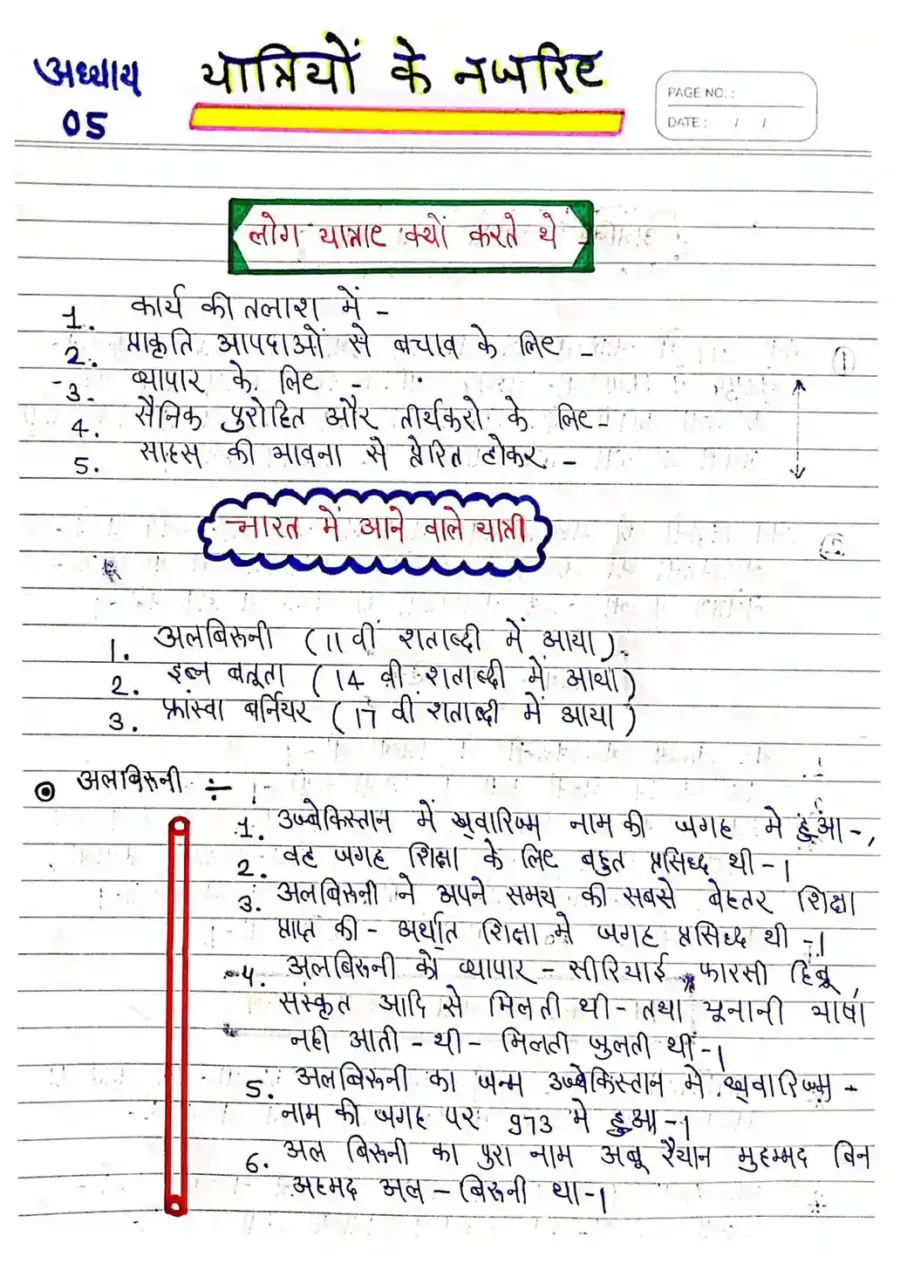 अध्याय
05
यात्रियों के नजरिए
PAGE NO.:
DATE: / /
लोग यात्राए क्यों करते थे -
1. कार्य की तलाश में -
2. प्राकृति आपदाओं से बचाव के लिए -
3. व्यापार के लिए -
4. सैनिक पुरोहित और तीर्थकरो के लिए -
5. साहस की भावना से प्रेरित होकर -
भारत में आने वाले यात्री
1. अलबिरूनी (11 वीं शताब्दी में आया)
2. इब्न बतूता (14 वी शताब्दी में आया)
3. फ्रांस्वा बर्नियर (17 वी शताब्दी में आया)
अलबिरूनी ÷
1. उज्बेकिस्तान में ख़्वारिज्म नाम की जगह मे हुआ -,
2. वह जगह शिक्षा के लिए बहुत प्रसिध्द थी -।
3. अलबिरूनी ने अपने समय की सबसे बेहतर शिक्षा
प्राप्त की - अर्थात शिक्षा मे जगह प्रसिध्द थी -।
4. अलबिरूनी को व्यापार - सीरियाई फारसी हिब्रू,
संस्कृत आदि से मिलती थी - तथा यूनानी भाषा
नही आती - थी - मिलती जुलती थी -।
5. अलबिरूनी का जन्म उज्बेकिस्तान मे ख़्वारिज्म -
नाम की जगह पर 973 मे हुआ -।
6. अल बिरूनी का पुरा नाम अबू रैयान मुहम्मद बिन
अहमद अल - बिरूनी था -।